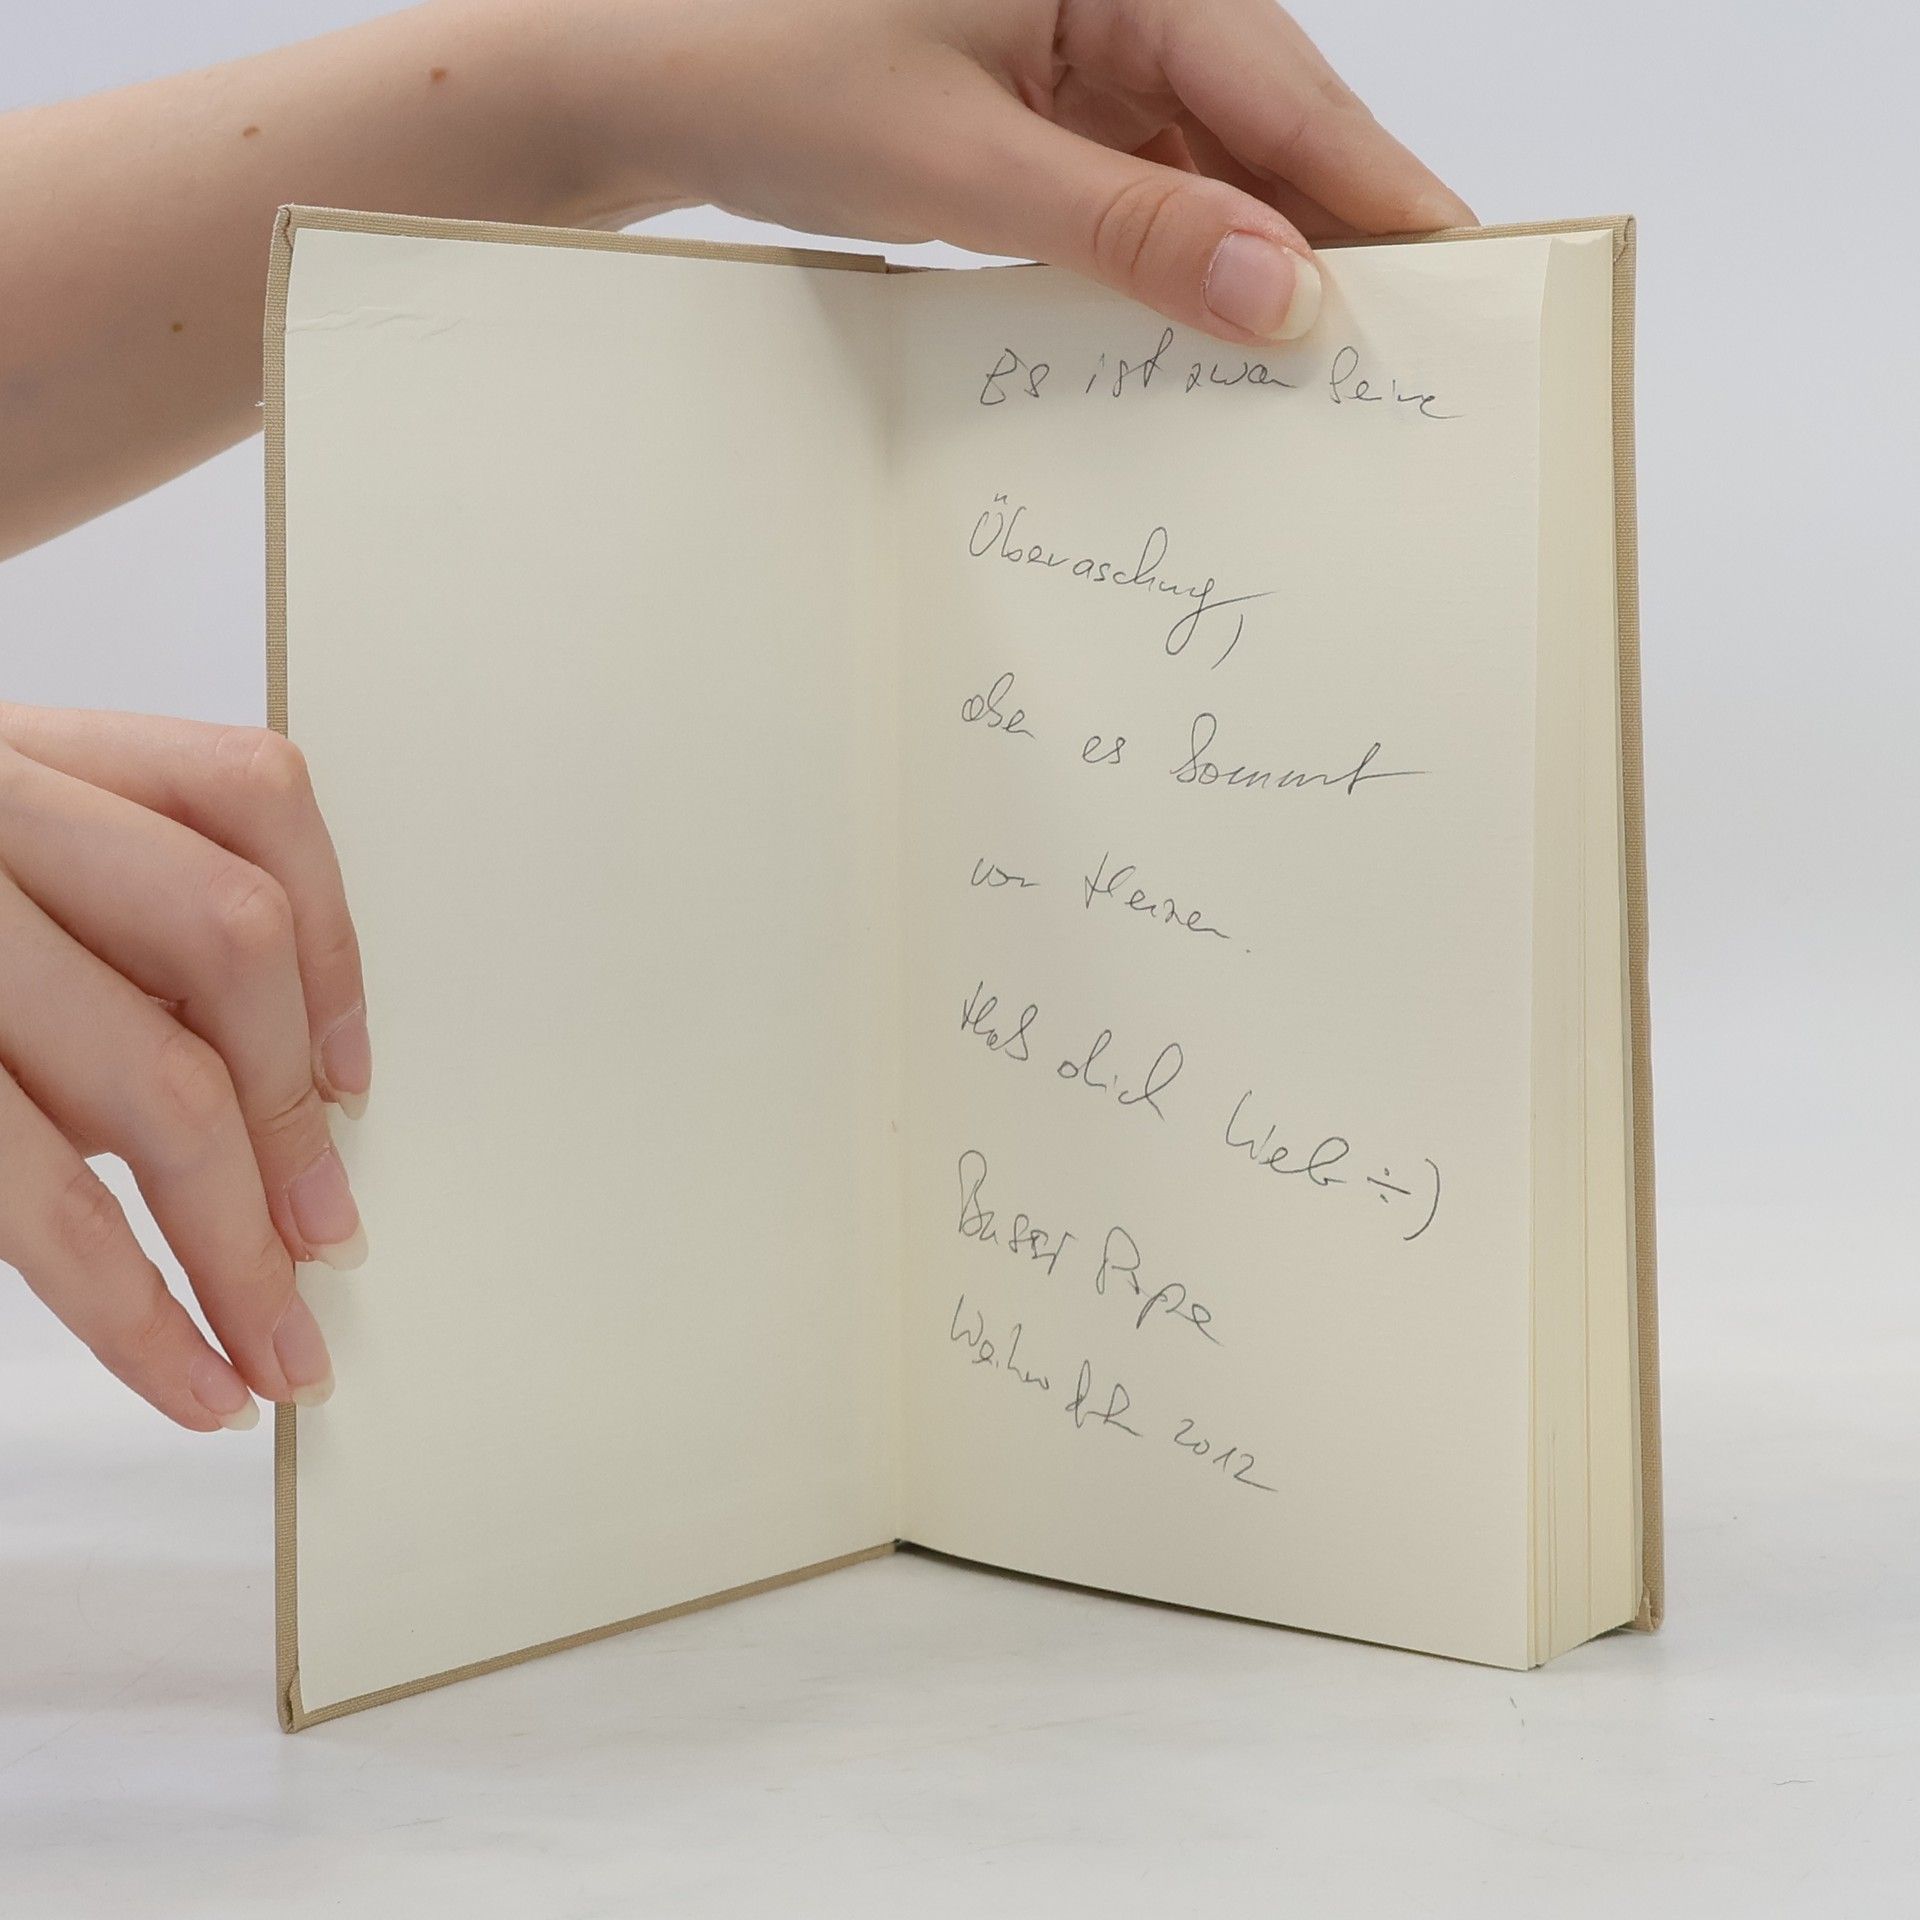 Es ist zwar keine
Überaschung,
aber es kommt
von Herzen.
Hab dich lieb ÷)
Bussi Papa
Weihnacht 2012